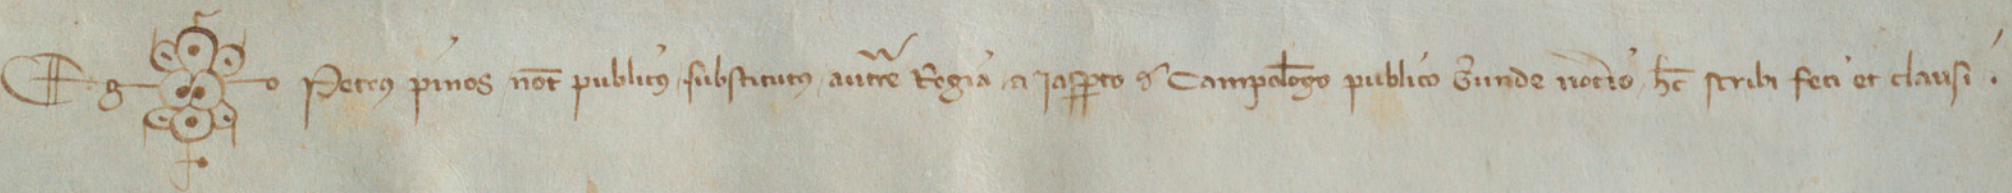 Ego Petrus pinos not publicus substitutus auctre Regia a Jasperto de Campolongo publico Gerunde notario hec scribi feci et clausi